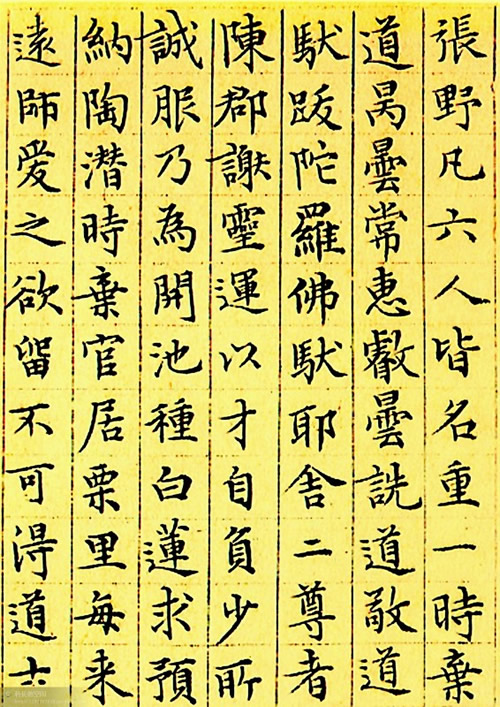 張野凡六人皆名重一時棄
道昺曇常惠叡曇詵道敬道
馱跋陀羅佛馱耶舍二尊者
陳郡謝靈運以才自負少所
誠服乃為開池種白蓮求預
納陶潛時棄官居栗里每来
遠師愛之欲留不可得道士